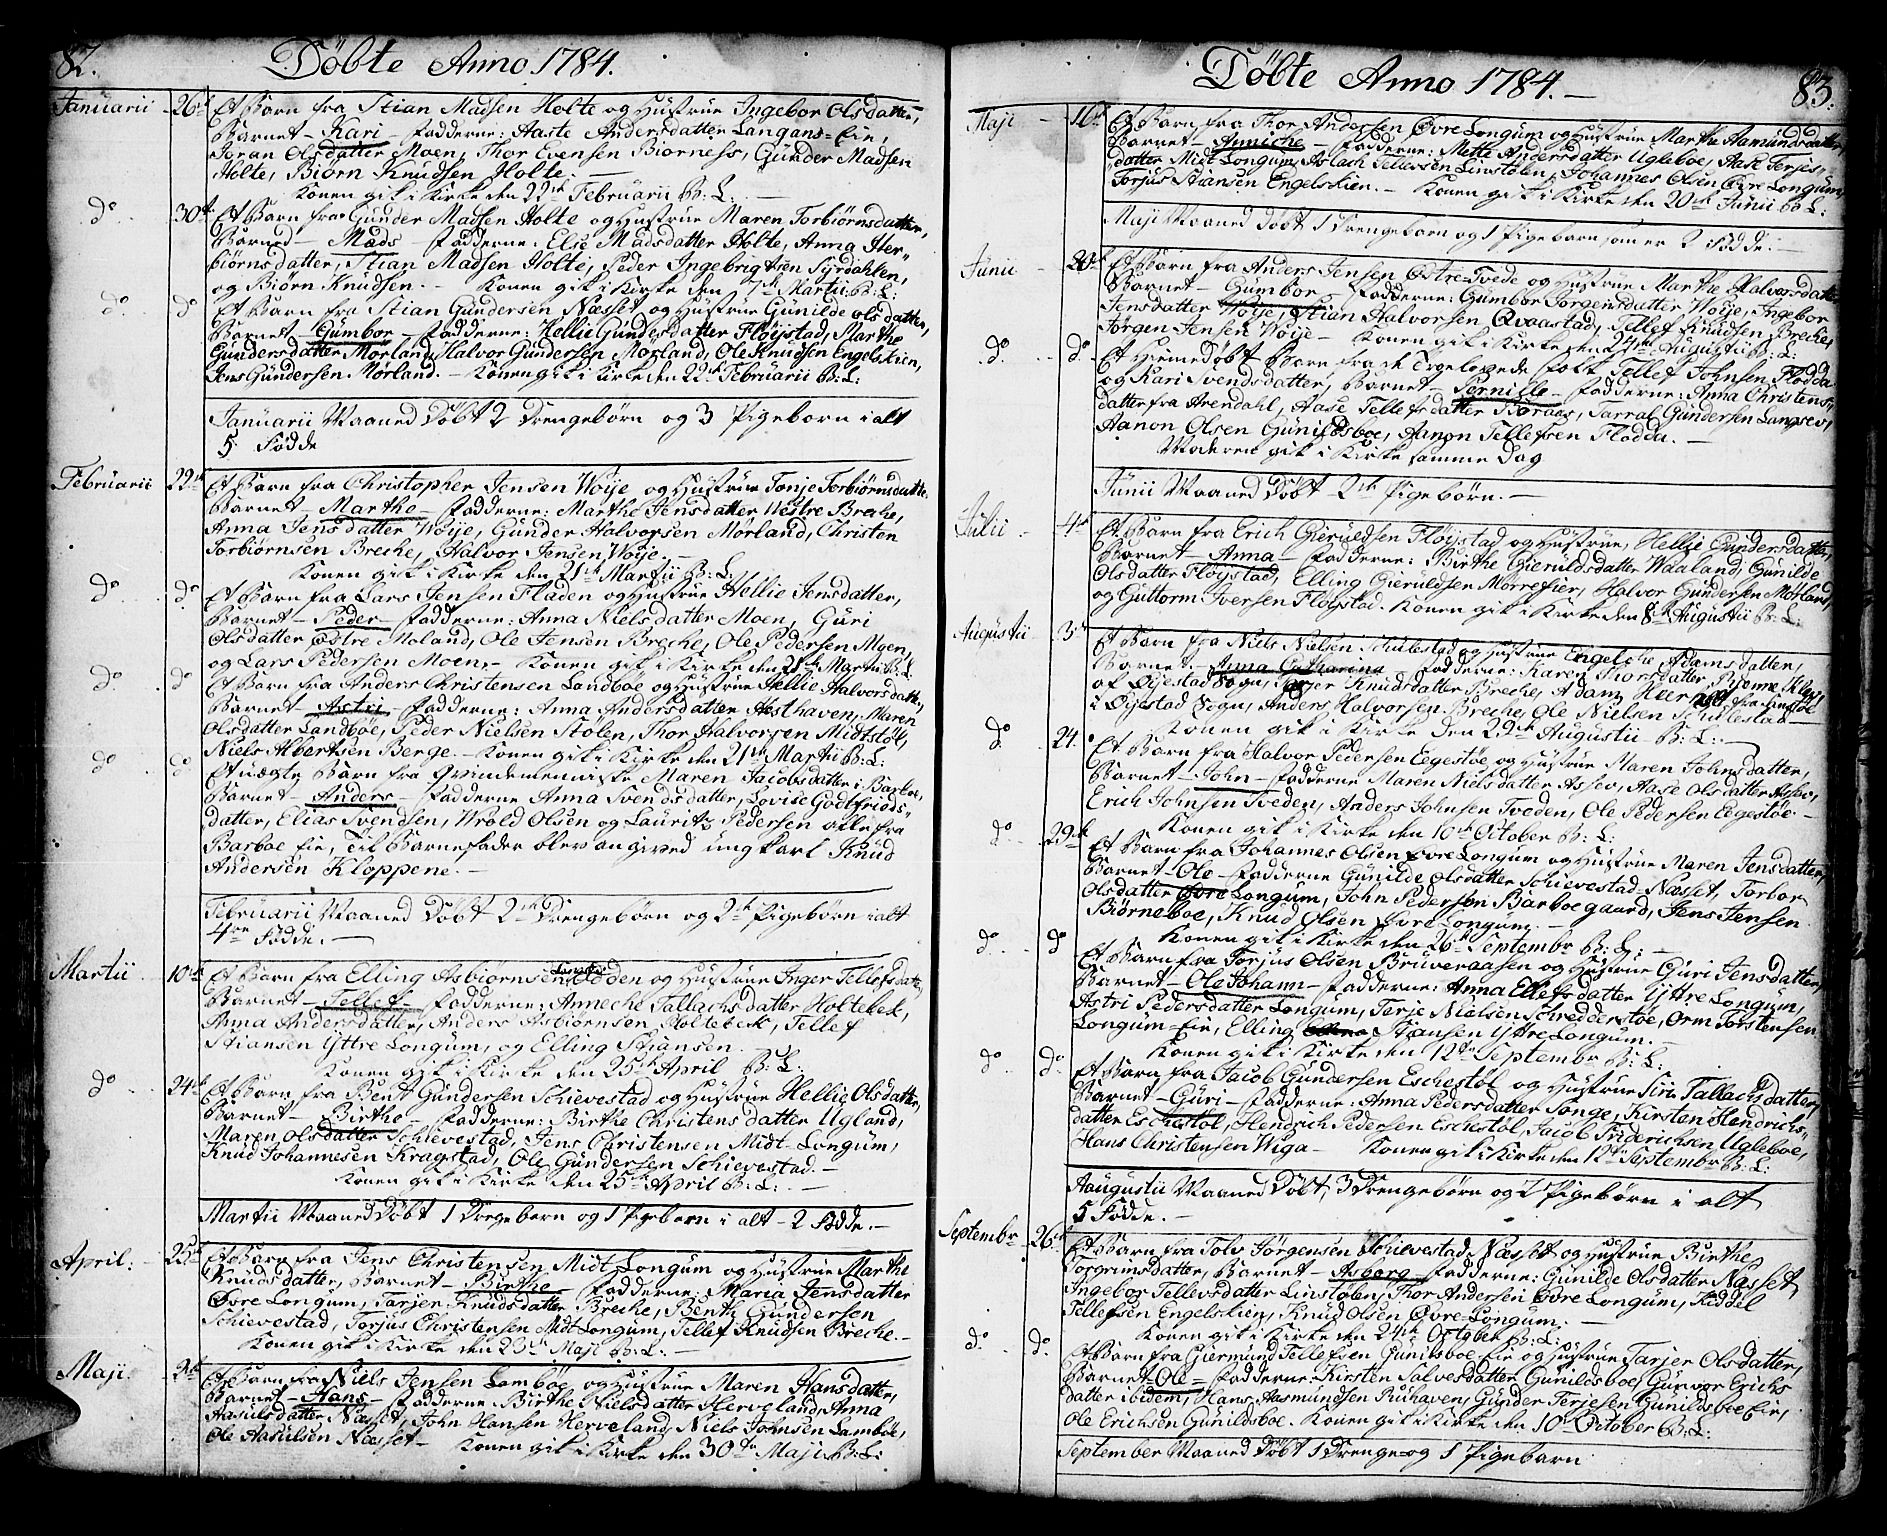 82.
Döbte Anno 1784.
Januarii 26de Et Barn fra Stian Madsen Holte og Hustrue Ingebor Olsdatter,
Barnet - Kari - Fadderne: Aaste Andersdatter Langans-Eie,
Joran Olsdatter Moen, Thor Evensen Biorness, Günder Madsen
Holte, Biörn Knudsen Holte. -
Konen gik i Kirke den 22de Februarii B: L:
do 30te Et Barn fra Günder Madsen Holte og Hustrue Maren Torbiörnsdatter,
Barned - Mads - Fadderne: Else Madsdatter Holte, Anna Ster-
biörnsdatter, Stian Madsen Holte, Peder Ingebrigtsen Syrdahlen,
og Biörn Knudsen. - Konen gik i Kirke den 7de Martii B: L:
do do Et Barn fra Stian Gündersen Næsset og Hustrue Günilde Olsdatter,
Barnet - Gümbor - Fadderne: Hellie Gündersdatter Flöystad, Marthe
Gündersdatter Mørland, Halvor Gündersen Mørland, Ole Knudsen Engelskien,
Jens Gündersen Mørland. - Konen gik i Kirke den 22de Februarii B: L:
Januarii Maaned Döbt 2 Drengebörn og 3 Pigeborn i alt
5 Födde
Februarii 22de Et Barn fra Christopher Jensen Woije og Hustrue Tonje Torbiörnsdatter
Barnet - Marthe - Fadderne: Marthe Jensdatter Westre Breche,
Anna Jensdatter Woije, Günder Halvorsen Mørland, Christen
Torbiörnsen Breche, Halvor Jensen Woije. -
Konen gik i Kirke den 21de Martii B: L:
do do Et Barn fra Lars Jensen Fladen og Hustrue Hellie Jensdatter,
Barnet - Peder - Fadderne: Anna Nielsdatter Moen, Güri
Olsdatter Østre Moland, Ole Jensen Breche, Ole Pedersen Moen,
og Lars Pedersen Moen. - Konen gik i Kirke den 21de Martii B: L:
do do Et Barn fra Anders Christensen Landböe og Hustrue Hellie Halvorsdatter,
Barnet - Astri - Fadderne: Anna Andersdatter Aesthaven, Maren
Olsdatter Landböe, Peder Nielsen Stölen, Thor Halvorsen Midtstöl,
Niels Albertsen Berge. - Konen gik i Kirke den 21de Martii B: L:
do do Et uægte Barn fra Qvindemenniske Maren Jacobsdatter i Barboe,
Barnet - Anders - Fadderne Anna Svendsdatter, Lovise Godtfrids-
datter, Elias Svendsen, Wrold Olsen og Lauritz Pedersen alle fra
Barboe Eie, Til Barnefader blev angived ungkarl Knüd
Andersen Kloppene. -
Februarii Maaned Döbt 2de Drengebörn og 2de Pigebörn i alt
4re Födde. -
Martii 10de Et Barn fra Elling Asbiörnsen Odden og Hustrue Inger Tellefsdatter
Barnet - Tellef - Fadderne: Anneche Tallachsdatter Holtebek,
Anna Andersdatter, Anders Asbiörnsen Holtebek, Tellef
Stiansen Yttre Longum, og Elling Stiansen.
Konen gik i Kirke den 25de April B: L:
do 24de Et Barn fra Bent Gündersen Schievestad og Hustrue Hellie Olsdatter,
Barnet - Birthe - Fadderne: Birthe Christensdatter Ugland,
Maren Olsdatter Schievestad, Jens Christensen Midt-Longum,
Knüd Johannesen Kragstad, Ole Gündersen Schievestad. -
Konen gik i Kirke den 25de April B: L: -
Martii Maaned Döbt 1 Dregebarn og 1 Pigebarn i alt - 2 Födde. -
April: 25de Et Barn fra Jens Christensen Midt Longum og Hustrue Marthe
Knüdsdatter, Barnet - Birthe - Fadderne: Maria Jensdatter
Øvre Longum, Tarjer Knüdsdatter Breche, Benth Gündersen
Schievestad, Torjus Christensen Midt Longum, Tellef Knüdsen Breche. -
Konen gik i Kirke den 23de Maji B: L: -
Maji. 2de Et Barn fra Niels Jensen Lamböe og Hustrue Maren Hansdatter,
Barnet - Hans - Fadderne Birthe Nielsdatter Herveland, Anna
Aasulsdatter Næsset, John Hansen Herveland, Niels Johnsen Lamböe,
Ole Aasulsen Næsset - Konen gik i Kirke den 30te Maji B: L:
Döbte Anno 1784. -
83.
Maji - 16de Et Barn fra Thor Andersen Øvre Longum og Hustrue Marthe Aamundsdatter,
Barnet - Anniche - Fadderne: Mette Andersdatter Ugleboe, Aase Terjes-
datter Midt Longum, Aslach Tellefsen Linstölen, Johannes Olsen Øvre Longum,
Torjus Stiansen Engelskien. - Konen gik i Kirke den 20de Junii B: L:
Maji Maaned Döbt 1 Drengebarn og 1 Pigebarn som er 2 Födde.
Junii - 20de Et Barn fra Anders Jensen Østre-Tvede og Hustrue Marthe Halvorsdatter
Barnet - Gumbor - Fadderne: Gumbor Jorgensdatter Woije, Ingebor
Jensdatter Woije, Stian Halvorsen Qvaastad, Tellef Knudsen Breche,
Jörgen Jensen Woije - Konen gik i Kirke den Augustii B: L:
do. do. Et Hiemedöbt Barn fra de Troelovede Folk Tellef Johnsen Flödda
og Kari Svendsdatter, Barnet - Pernille - Fadderne: Anna Christens-
datter fra Arendahl, Aase Tellefsdatter Boraas, Tarral Gündersen Langsev,
Aanon Olsen Günildsboe, Aanon Tellefsen Flödda. -
Moderen gik i Kirke samme Dag
Junii Maaned Döbt 2de Pigebörn. -
Julii - 4de Et Barn fra Erich Gieruldsen Flöystad og Hustrue, Hellie Gündersdatter,
Barnet - Anna - Fadderne: Birthe Gieruldsdatter Waaland, Günilde
Olsdatter Flöystad, Elling Gieruldsen Mörrefier, Halvor Gündersen Mørland,
og Guttorm Iversen Flöystad. Konen gik i Kirke den 8de Augustii B: L:
Augustii 3de Et Barn fra Niels Nielsen Schulestad og Hustrue Engelche Adamsdatter,
Barnet - Anna Catharina Fadderne: Karen Thorsdatter
af Öyestad Sogn, Tarjer Knudsdatter Breche, Adam
i Öyestad Sogn, Anders Halvorsen Breche, Ole Nielsen Schulestad
Konen gik i Kirke den 29de Augustii B: L: -
do. 24. Et Barn fra Halvor Pedersen Eegestöe og Hustrue Maren Johnsdatter,
Barnet - John - Fadderne Maren Nielsdatter Assev, Aase Olsdatter Assev,
Erich Johnsen Tveden, Anders Johnsen Tveden, Ole Pedersen Eegestöe. -
Konen gik i Kirke den 10de October B: L:
do 29de Et Barn fra Johannes Olsen Øvre Longum og Hustrue Maren Jensdatter,
Barnet - Ole - Fadderne Günilde Olsdatter Schievestad-Næsset, Torbor
Olsdatter Øvre Longum, John Pedersen Barboegaard, Jens Jensen
Biörneboe, Knud Olsen Øvre Longum. -
Konen gik i Kirke den 26de Septembr B: L: -
do do Et Barn fra Torjus Olsen Bruveraasen og Hustrue Güri Jensdatter,
Barnet - Ole Johann - Fadderne: Anna Ellefsdatter Yttre Longum,
Astri Pedersdatter Longum, Terje Nielsen Schreddersto​e, Orm Torstensen
Longum-Eie, Elling Stiansen Yttre Longum. -
Konen gik i Kirke den 12te Septembr B: L:
do do. Et Barn fra Jacob Gündersen Eschestöl og Hustrue Siri Tallachsdatter,
Barnet - Güri - Fadderne: Anna Pedersdatter Songe, Kirsten Hendrichs-
datter Eschestöl, Hendrich Pedersen Eschestöl, Jacob Friderichsen Ugleboe,
Hans Christensen Wiga - Konen gik i Kirke den 12te Septembr B: L:
Aaugustii Maaned Döbt, 3 Drengebörn og 2 Pigebörn i alt
5 Födde. -
Septembr 26de Et Barn fra Tolv Jörgensen Schievestad Næsset og Hustrue Birthe
Torgrimsdatter, Barnet - Asborg - Fadderne: Günilde Olsdatter Næsset,
Ingebor Tellevsdatter Linstölen, Thor Andersen Øvre Longum, Kiddel
Tellefsen Engelskien, Knud Olsen Øvre-Longum. -
Konen gik i Kirke den 24de October B: L:
do. do. Et Barn fra Giermund Tellefsen Gunilsboe Eie og Hustrue Tarjer Olsdatter,
Barnet - Ole - Fadderne: Kirsten Salvesdatter Gunildsboe, Gunvor Erichs
datter ibidem, Hans Aasmundsen Ruhaven, Günder Terjesen Günildsboe Eie,
Ole Erichsen Gunildsboe. Konen gik i Kirke den 10de October B: L:
September Maaned Döbt 1 Drenge-og 1 Pigebarn